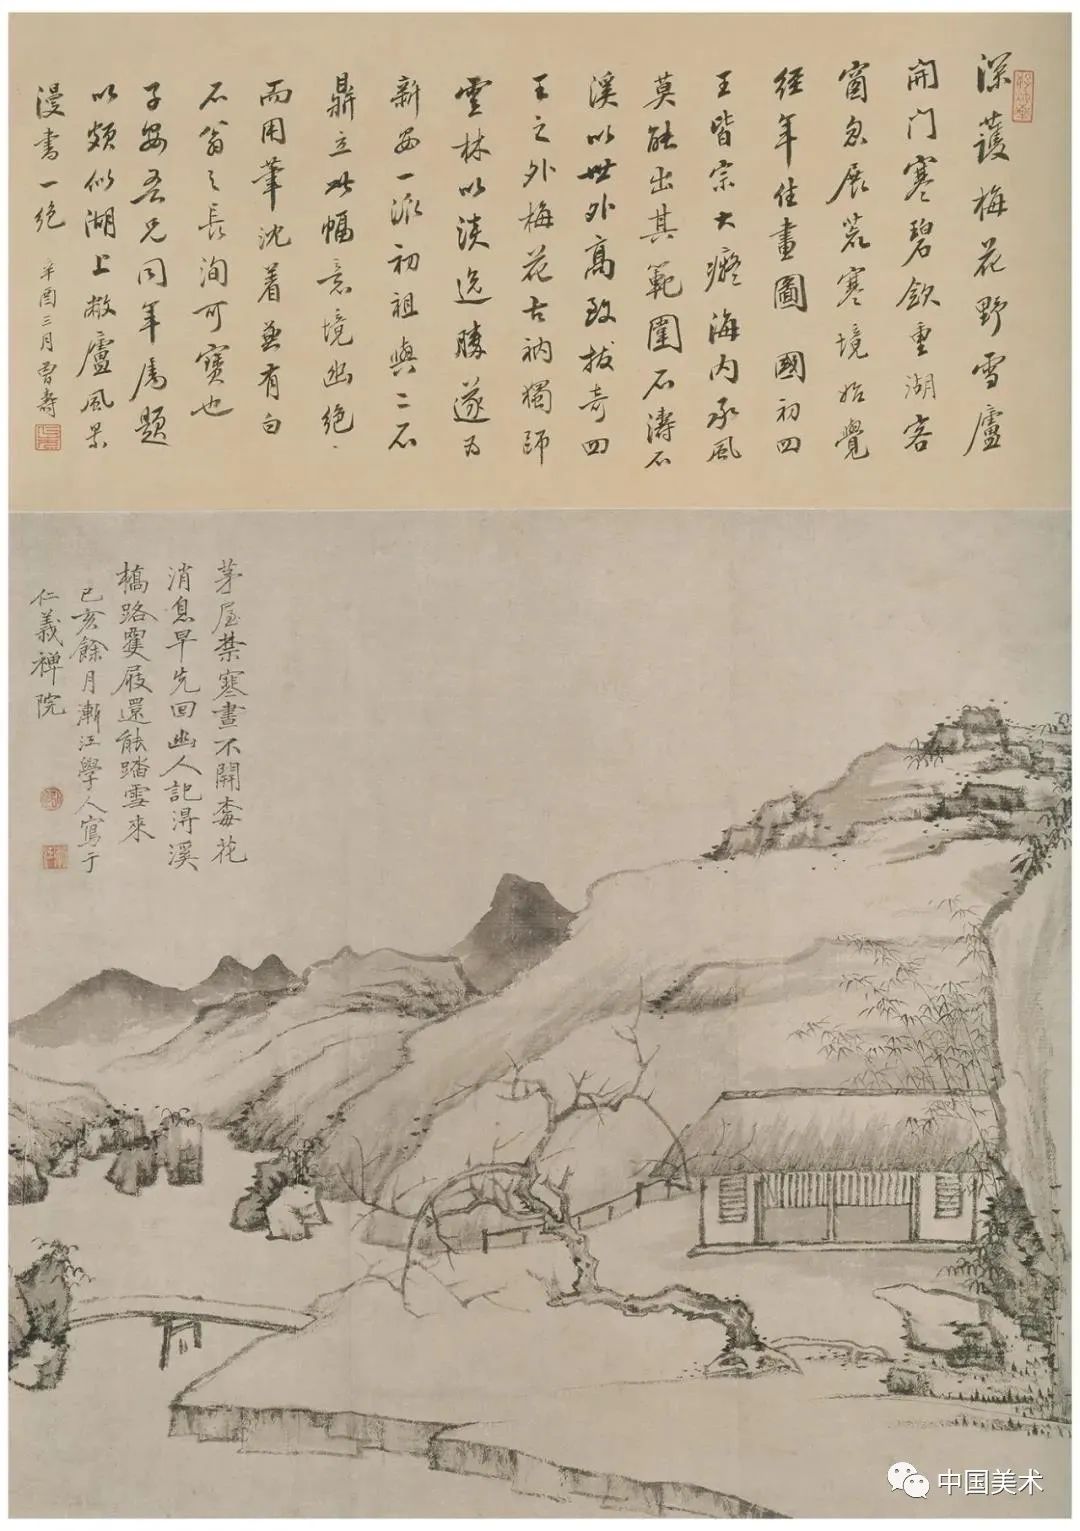 深護梅花野雪廬
開門寒碧欽重湖客
窗忽展荒寒境始覺
經年住畫圖 國初四
王皆宗大癡海內承風
莫能出其範圍石濤石
溪以世外高致拔奇四
王之外梅花古衲獨師
雲林以淡逸勝遂為
新安一派初祖與二石
鼎立此幅意境幽絕
而用筆沈着兼有白
石翁之長洵可寶也
子安吾兄同年屬題
以頗似湖上敝廬風景
漫書一絕 辛酉三月曾壽
茅屋禁寒晝不開梅花
消息早先回幽人記得溪
橋路蠟屐還能踏雪來
己亥餘月漸江學人寫于
仁義禪院
中国美术